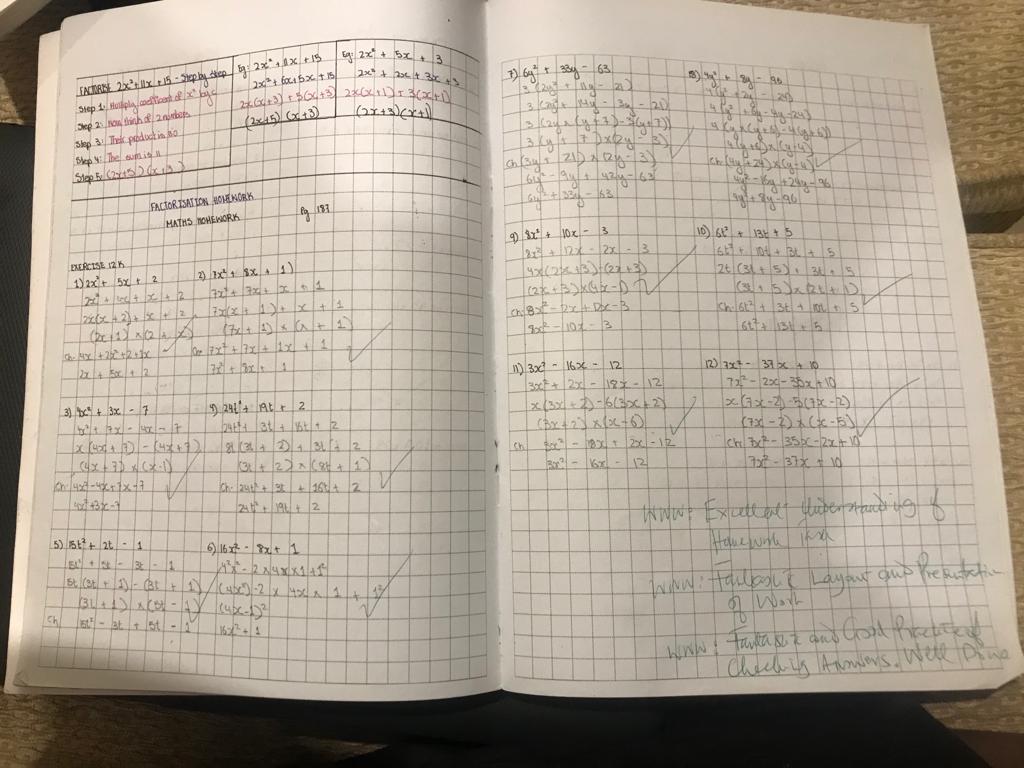 FACTORISE 2x² + 11x + 15 - Step by Step
Step 1: Multiply coefficient of x² by c
Step 2: Now think of 2 numbers
Step 3: Their product is 30
Step 4: The sum is 11
Step 5: (2x+5) (x+3)
Eg: 2x² + 11x + 15
2x² + 6x + 5x + 15
2x(x+3) + 5(x+3)
(2x+5) (x+3)
Eg: 2x² + 5x + 3
2x² + 2x + 3x + 3
2x(x+1) + 3(x+1)
(2x+3)(x+1)
FACTORISATION HOMEWORK
MATHS HOMEWORK
Pg 187
EXERCISE 12K
1) 2x² + 5x + 2
2x² + 4x + x + 2
2x(x + 2) + x + 2
(2x+1) × (2 + x)
Ch: 4x + 2x² + 2 + 1x
2x + 5x + 2
2) 7x² + 8x + 1)
7x² + 7x + x + 1
7x(x + 1) + x + 1
(7x + 1) × (x + 1)
7x² + 7x + 1x + 1
7x² + 8x + 1
3) 4x² + 3x - 7
4x² + 7x - 4x - 7
x(4x + 7) - (4x + 7)
(4x + 7) × (x-1)
Ch: 4x² - 4x + 7x - 7
4x² + 3x - 7
4) 24t² + 19t + 2
24t² + 3t + 16t + 2
8t(3t + 2) + 3t + 2
(3t + 2) × (8t + 1)
Ch: 24t² + 3t + 16t + 2
24t² + 19t + 2
5) 15t² + 2t - 1
15t² + 5t - 3t - 1
5t(3t + 1) - (3t + 1)
(3t + 1) × (5t - 1)
Ch 15t² - 3t + 5t - 1
6) 16x² - 8x + 1
4²x² - 2 × 4x × 1 + 1²
(4x²) - 2 × 4x × 1 + 1²
(4x-1)²
16x² + 1
7) 6y² + 33y - 63
3(2y² + 11y - 21)
3(2y² + 14y - 3y - 21)
3(2y × (y + 7) - 3(y+7))
3(y + 7) × (2y - 3)
Ch (3y + 21) × (2y - 3)
6y² - 9y + 42y - 63
6y² + 33y - 63
8) 4y² + 8y - 96
4(y² + 2y - 24)
4(y² + 6y - 4y - 24)
4(y × (y+6) - 4(y+6))
4(y+6) × (y+4)
Ch: (4y + 24) × (y+4)
4y² - 16y + 24y - 96
4y² + 8y - 96
9) 8x² + 10x - 3
8x² + 12x - 2x - 3
4x(2x+3) - (2x + 3)
(2x + 3) × (4x - 1)
Ch: 8x² - 2x + 12x - 3
8x² - 10x - 3
10) 6t² + 13t + 5
6t² + 10t + 3t + 5
2t (3t + 5) + 3t + 5
(3t + 5) × (2t + 1)
Ch: 6t² + 3t + 10t + 5
6t² + 13t + 5
11) 3x² - 16x - 12
3x² + 2x - 18x - 12
x(3x + 2) - 6(3x + 2)
(3x + 2) × (x-6)
Ch 3x² - 18x + 2x - 12
3x² - 16x - 12
12) 7x² - 37x + 10
7x² - 2x - 35x + 10
x(7x - 2) - 5(7x - 2)
(7x - 2) × (x - 5)
Ch: 7x² - 35x - 2x + 10
7x² - 37x + 10
WWW: Excellent Understanding of
Homework
WWW: Fantastic Layout and Presentation
of Work
WWW: Fantastic and Good Practice of
Checking Answers. Well Done